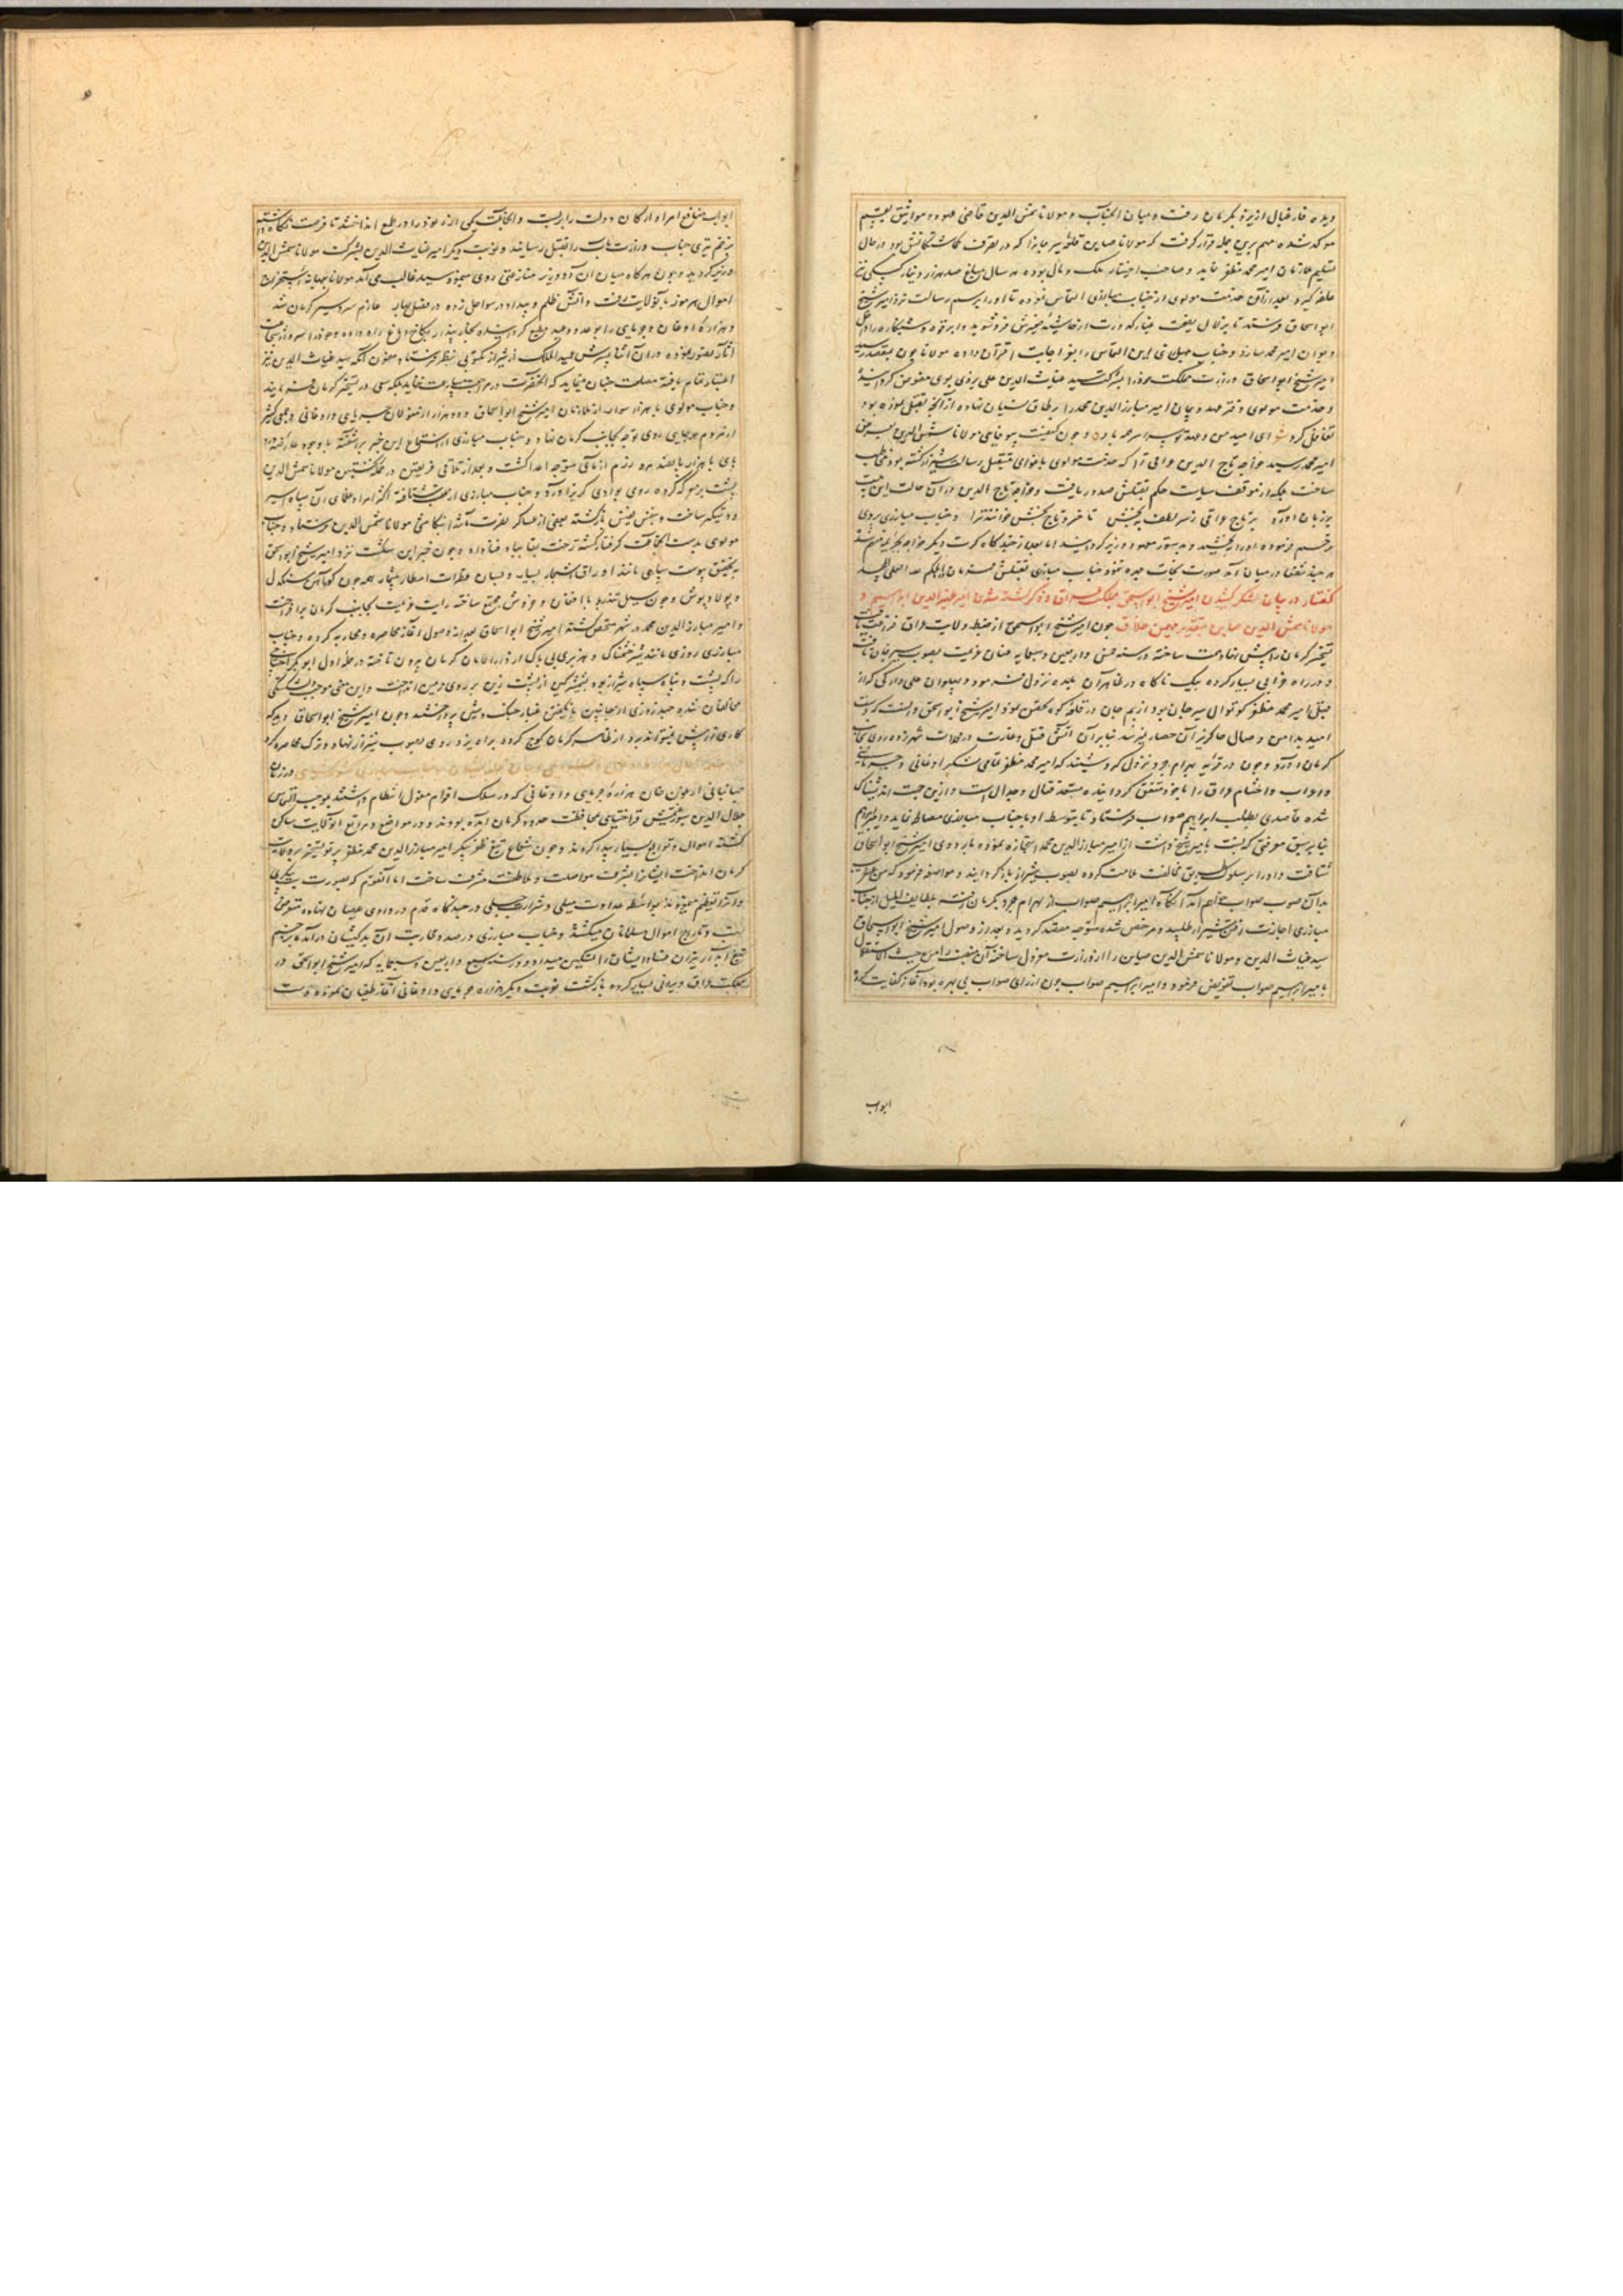 دیده فار قبال از یزد بکرمان رفت و میان انجناب و مولانا شمس الدین قاضی عهود و مواثیق بقسم
موکد شده مهم برین جمله قرار گرفت که مولانا صاین قلعه سیرجانرا که در تصرف کماشتکانش بود در حال
تسلیم ملازمان امیر محمد مظفر نماید و صاحب اختیار ملک و مال بوده هر سال مبلغ صد هزار دینار کبکی
علوفه کیرد و بعد از آن خدمت مولوی از جناب مبارزی التماس نموده تا او را برسم رسالت نزد امیر شیخ
ابو اسحاق فرستد تا بزلال نصیحت غبار کدورت از حاشیه ضمیرش فرو شوید و ابرقوه و شبانکاره را داخل
دیوان امیر محمد سازد و جناب مبارزی این التماس را بعز اجابت اقتران داده مولانا چون بمقصد رسید
امیر شیخ ابو اسحاق وزارت مملکت خود را بشرکت سید غیاث الدین علی یزدی بوی مفوض کردانید
و خدمت مولوی دفتر عهد و پیمان امیر مبارز الدین محمد را بر طاق نسیان نهاده از آنچه تقبل نموده بود
تغافل کرد
امیر محمد رسید خواجه تاج الدین عراقی را که خدمت مولوی باغوای
ساخت بلکه از موقف سیاست حکم بقتلش صدور یافت و خواجه تاج الدین در آن حالت این بیت
بر زبان آورد بر تاج عراقی از سر لطف ببخش تا خسرو تاج بخش خوانند ترا و جناب مبارزی بروی
ترحم فرموده او را ببخشید و بدستور معهود وزیر کردانید اما بعد از چند کاه کرت دیگر خواجه
هر چند شفعا در میان آمد صورت نجات چهره ننمود جناب مبارزی بقتلش فرمان داد الحکم لله العلی الکبیر
گفتار در بیان لشکر کشیدن امیر شیخ ابو اسحق بملکت عراق و ذکر کشته شدن امیر ظهیر الدین ابراهیم و
مولانا شمس الدین صاین بتقدیر مهیمن خلاق چون امیر شیخ ابو اسحق از ضبط ولایت عراق فراغت یافت
تسخیر کرمان را پیش نهاد همت ساخته در سنه خمس و اربعین و سبعمایه عنان عزیمت بصوب سیرجان تافت
و در راه خرابی بسیار کرده بیک ناکاه در ظاهر آن بلده نزول فرمود و پهلوان علی دارکی که از
قبل امیر محمد مظفر کوتوال سیرجان بود از بیم جان در قلعه کوه تحصن نمود امیر شیخ ابو اسحق دانست که دست
امید بدامن وصال حاکم نیز آن حصار نمیرسد بنابرآن آتش قتل و غارت در محلات شهر زده روی بجانب
کرمان آورد و چون در قریه بهرام جرد نزول کرد شنید که امیر محمد مظفر تمامی لشکر اوغانی و جرمانی
و اعراب و احشام عراق را با خود متفق کردانیده مستعد قتال و جدال است و ازین جهت اندیشناک
شده قاصدی بطلب ابراهیم صواب فرستاد تا بتوسط او با جناب مبارزی مصالحه نماید و امیر ابراهیم
بنا بر سبق معرفتی که بامیر شیخ داشت از امیر مبارز الدین محمد استجازه نموده باردوی امیر شیخ ابو اسحاق
شتافت و او را بر سلوک طریق مخالفت ملامت کرده بصوب شیراز باز کردانید و مواضعه فرمود که من عنقریب
بدآن صوب صواب خواهم آمد آنکاه امیر ابراهیم صواب از بهرام جرد بکرمان رفته بلطایف الحیل از جناب
مبارزی اجازت رفتن شیراز طلبید و مرخص شده متوجه مقصد کردید و بعد از وصول امیر شیخ ابو اسحاق
سید غیاث الدین و مولانا شمس الدین صاین را از وزارت معزول ساخته آن منصب را من حیث الاستقلال
بامیر ابراهیم صواب تفویض فرمود و امیر ابراهیم صواب چون از رای صواب بی بهره بود آغاز کفایت کرده
ابواب
ابواب منافع امرا و ارکان دولت را بربست
بزخم تیری جناب وزارت مآب را بقتل رسانیدند و نوبت دیگر امیر غیاث الدین بشرکت مولانا شمس الدین
وزیر کردید و چون هرکاه میان آن دو وزیر منازعتی روی مینمود سید غالب می آمد مولانا ببهانه استخراج
اموال هرموز بآنولایت رفت و آتش ظلم و بیداد در سواحل زده در فصل بهار عازم سردسیر کرمان شد
و هزاره اوغان و جرمایی را بوعد و وعید مطیع کردانیده
در آن اثنا پسرش عمید الملک از شیراز مکتوبی بنظر فرستاد مضمون آنکه سید غیاث الدین نیز
اعتبار تمام یافته مصلحت چنان مینماید که آنحضرت در مراجعت مسارعت ننماید بلکه سعی در تسخیر کرمان فرمایند
و جناب مولوی با هزار سوار از ملازمان امیر شیخ ابو اسحاق و دو هزار از مغولان جرمایی و اوغانی و جمعی کثیر
از مردم هرجایی روی توجه بجانب کرمان نهاد و جناب مبارزی از استماع این خبر برآشفته با وجود عارضه درد
پای با هزار پانصد مرد رزم آزمای متوجه اعدا کشت و بعد از تلاقی فریقین در حمله نخستین مولانا شمس الدین
پشت بر معرکه کرده روی بوادی کریز آورد و جناب مبارزی از عقب شتافته اکثر امرا و عظمای آن سپاه اسیر
و دستکیر ساخت و بنفس نفیس بازکشته بعضی از عساکر نصرت مآثر را بتکامشی مولانا شمس الدین فرستاد و جناب
مولوی بدست آنجماعت کرفتار کشته رخت بقا بباد فنا داد و چون خبر این شکست نزد امیر شیخ ابو اسحق
بتحقیق پیوست سپاهی مانند اوراق اشجار بسیار و بسان قطرات امطار بیشمار همه چون کوه آهن سنکدل
و پولاد پوش و چون سیل تند رو با افغان و خروش مجتمع ساخته رایت عزیمت بجانب کرمان برافراخت
و امیر مبارز الدین محمد در شهر متحصن کشته امیر شیخ ابو اسحاق بعد از وصول آغاز محاصره و محاربه کرده و جناب
مبارزی روزی مانند شیر خشمناک و هزبری بی باک از دار الامان کرمان بیرون تاخته در حمله اول ابو بکر
را که پشت و پناه سپاه شیراز بود بشمشیر کین از پشت زین بر روی زمین انداخت و این معنی موجب دلشکستگی
مخالفان شده چند روزی از جانبین بانکیختن غبار جنک و شین پرداختند و چون امیر شیخ ابو اسحاق دید که
کاری از پیش نمیتواند برد از ظاهر کرمان کوچ کرده براه یزد روی بصوب شیراز نهاد و ترک محاصره کرد
در زمان
جهانبانی ارغون خان هزاره جرمایی و اوغانی که در سلک اقوام مغول انتظام داشتند بموجب التماس
جلال الدین سیورغتمش قراختایی بمحافظت حدود کرمان آمده بودند و در مواضع و مراتع آنولایت ساکن
کشته اموال و توابع بسیار پیدا کردند و چون شعاع تیغ ظفر پیکر امیر مبارز الدین محمد مظفر پرتو تسخیر بر ولایت
کرمان انداخت ایشانرا بشرف مواصلت و ملاطفت مشرف ساخت اما آنقوم که بصورت
بواسطه عداوت میلی و شرارت جبلی در چند کاه قدم در وادی عصیان نهاده متعرض
نهب و تاراج اموال مسلمانان میکشتند و جناب مبارزی در صدد محاربت آن بدکیشان درآمده بزخم
تیغ آبدار نیران فساد ایشان را تسکین میداد و در سنه سبع و اربعین و سبعمایه که امیر شیخ ابو اسحق در
مملکت عراق ویرانی بسیار کرده بازکشت نوبت دیگر هزاره جرمایی و اوغانی آغاز طغیان نموده دست